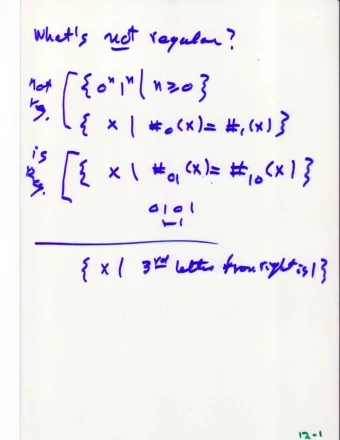 What's not regular?
not reg. { 0ⁿ1ⁿ | n ≥ 0 }
{ x | #₀(x) = #₁(x) }
is reg. { x | #₀₁(x) = #₁₀(x) }
0101
{ x | 3rd letter from right is 1 }
12-1